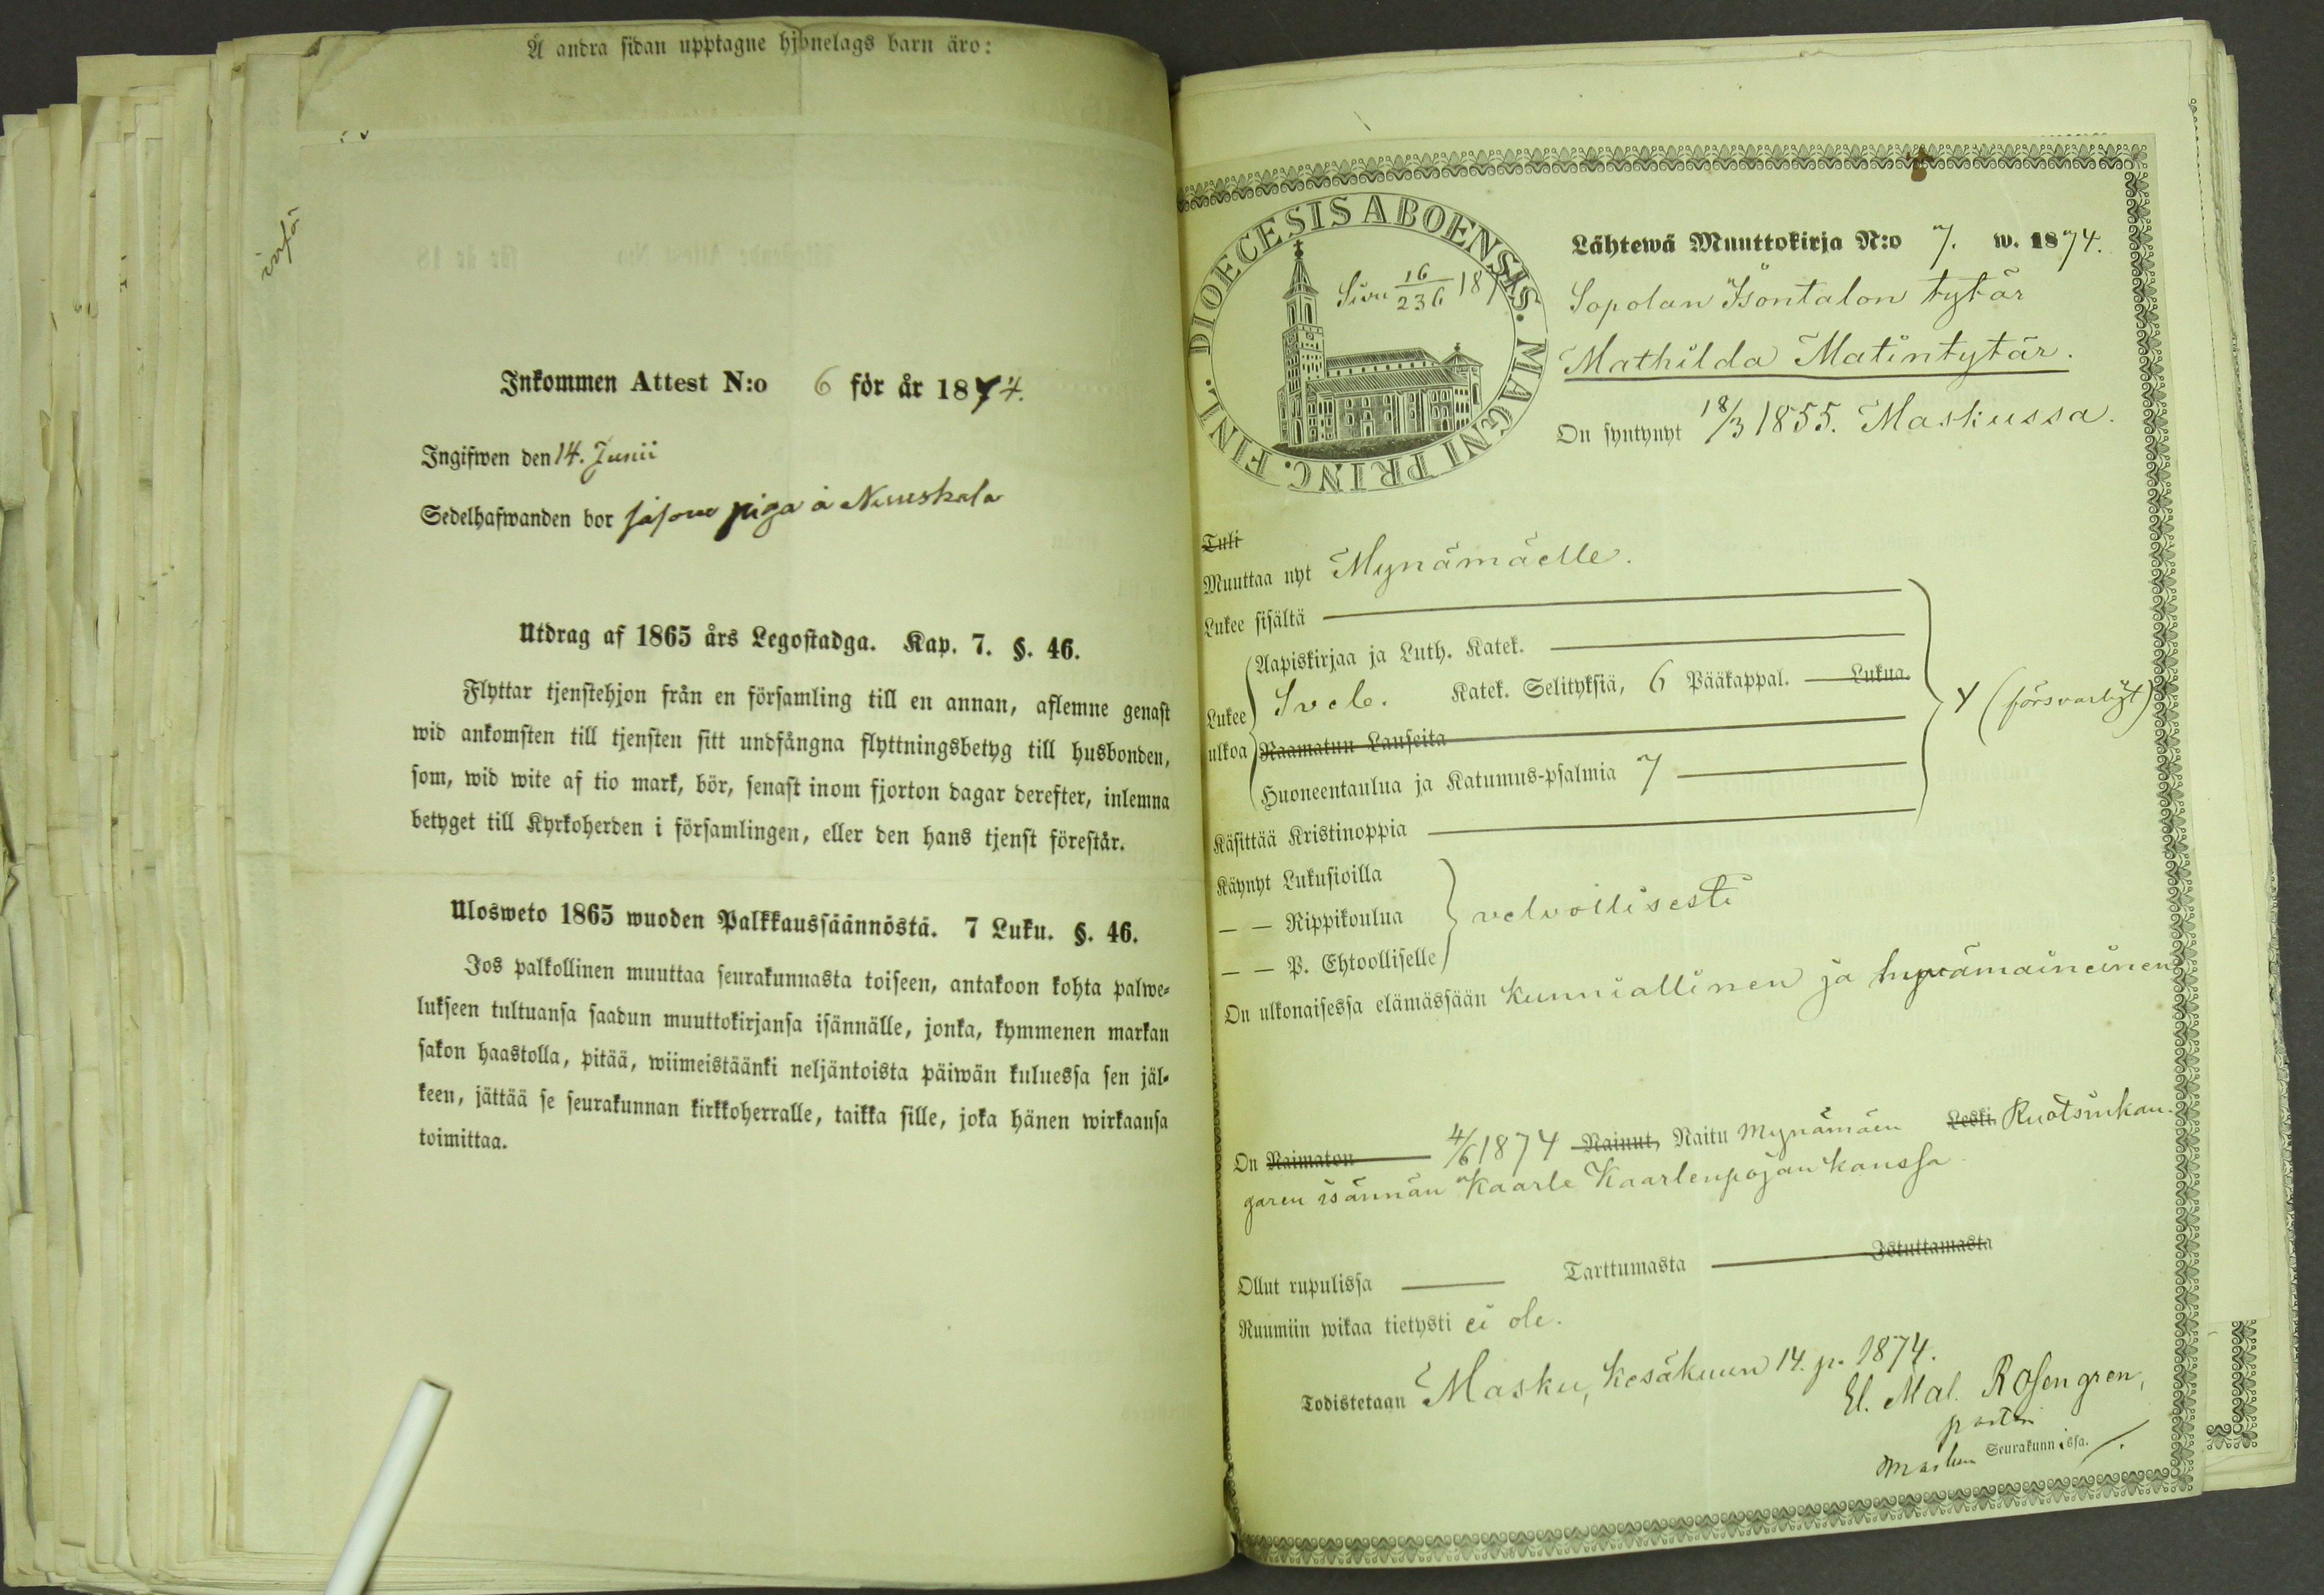 Å andra sidan upptagne hjonelags barn äro:
införd
Inkommen Attest N:o 6 för år 1874.
Ingifwen den 14. Junii
Sedelhafwanden bor såsom piga å Nuuskala
Utdrag af 1865 års Legostadga. Kap. 7. §. 46.
Flyttar tjenstehjon från en församling till en annan, aflemne genast
wid ankomsten till tjensten sitt undfångna flyttningsbetyg till husbonden,
som, wid wite af tio mark, bör, senast inom fjorton dagar derefter, inlemna
betyget till Kyrkoherden i församlingen, eller den hans tjenst förestår.
Ulosweto 1865 wuoden Palkkaussäännöstä. 7 Luku. §. 46.
Jos palkollinen muuttaa seurakunnasta toiseen, antakoon kohta palwe-
lukseen tultuansa saadun muuttokirjansa isännälle, jonka, kymmenen markan
sakon haastolla, pitää, wiimeistäänki neljäntoista päiwän kuluessa sen jäl-
keen, jättää se seurakunnan kirkkoherralle, taikka sille, joka hänen wirkaansa
toimittaa.
DIOECESIS ABOENSIS. MAGNI PRINC. FINL.
Sivu 16/236 187
Lähtewä Muuttokirja N:o 7. w. 1874.
Sopolan Isontalon tytär
Mathilda Matintytär.
On syntynyt 18/3 1855. Maskussa.
Tuli
Muuttaa nyt Mynämäelle.
Lukee sisältä
Aapiskirjaa ja Luth. Katek.
Lukee ulkoa Sveb. Katek. Selityksiä, 6 Pääkappal. Lukua.
Raamatun Lauseita
Huoneentaulua ja Katumus-psalmia 7
Y (försvarligt)
Käsittää Kristinoppia
Käynyt Lukusioilla
— — Rippikoulua velvollisesti
— — P. Ehtoolliselle
On ulkonaisessa elämässään kunniallinen ja hyvämaineinen
On Naimaton 4/6 1874 Nainut, Naitu Mynämäen Leski Ruotsinkan-
garen isännän Kaarle Kaarlenpojan kanssa
Ollut rupulissa Tarttumasta Istuttamasta
Ruumiin wikaa tietysti ei ole.
Todistetaan Masku, Kesäkuun 14. p. 1874.
El. Mal. Rosengren,
pastori
Maskun Seurakunnissa.